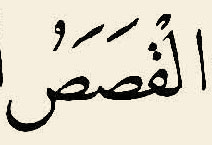 الْقَصَصُ